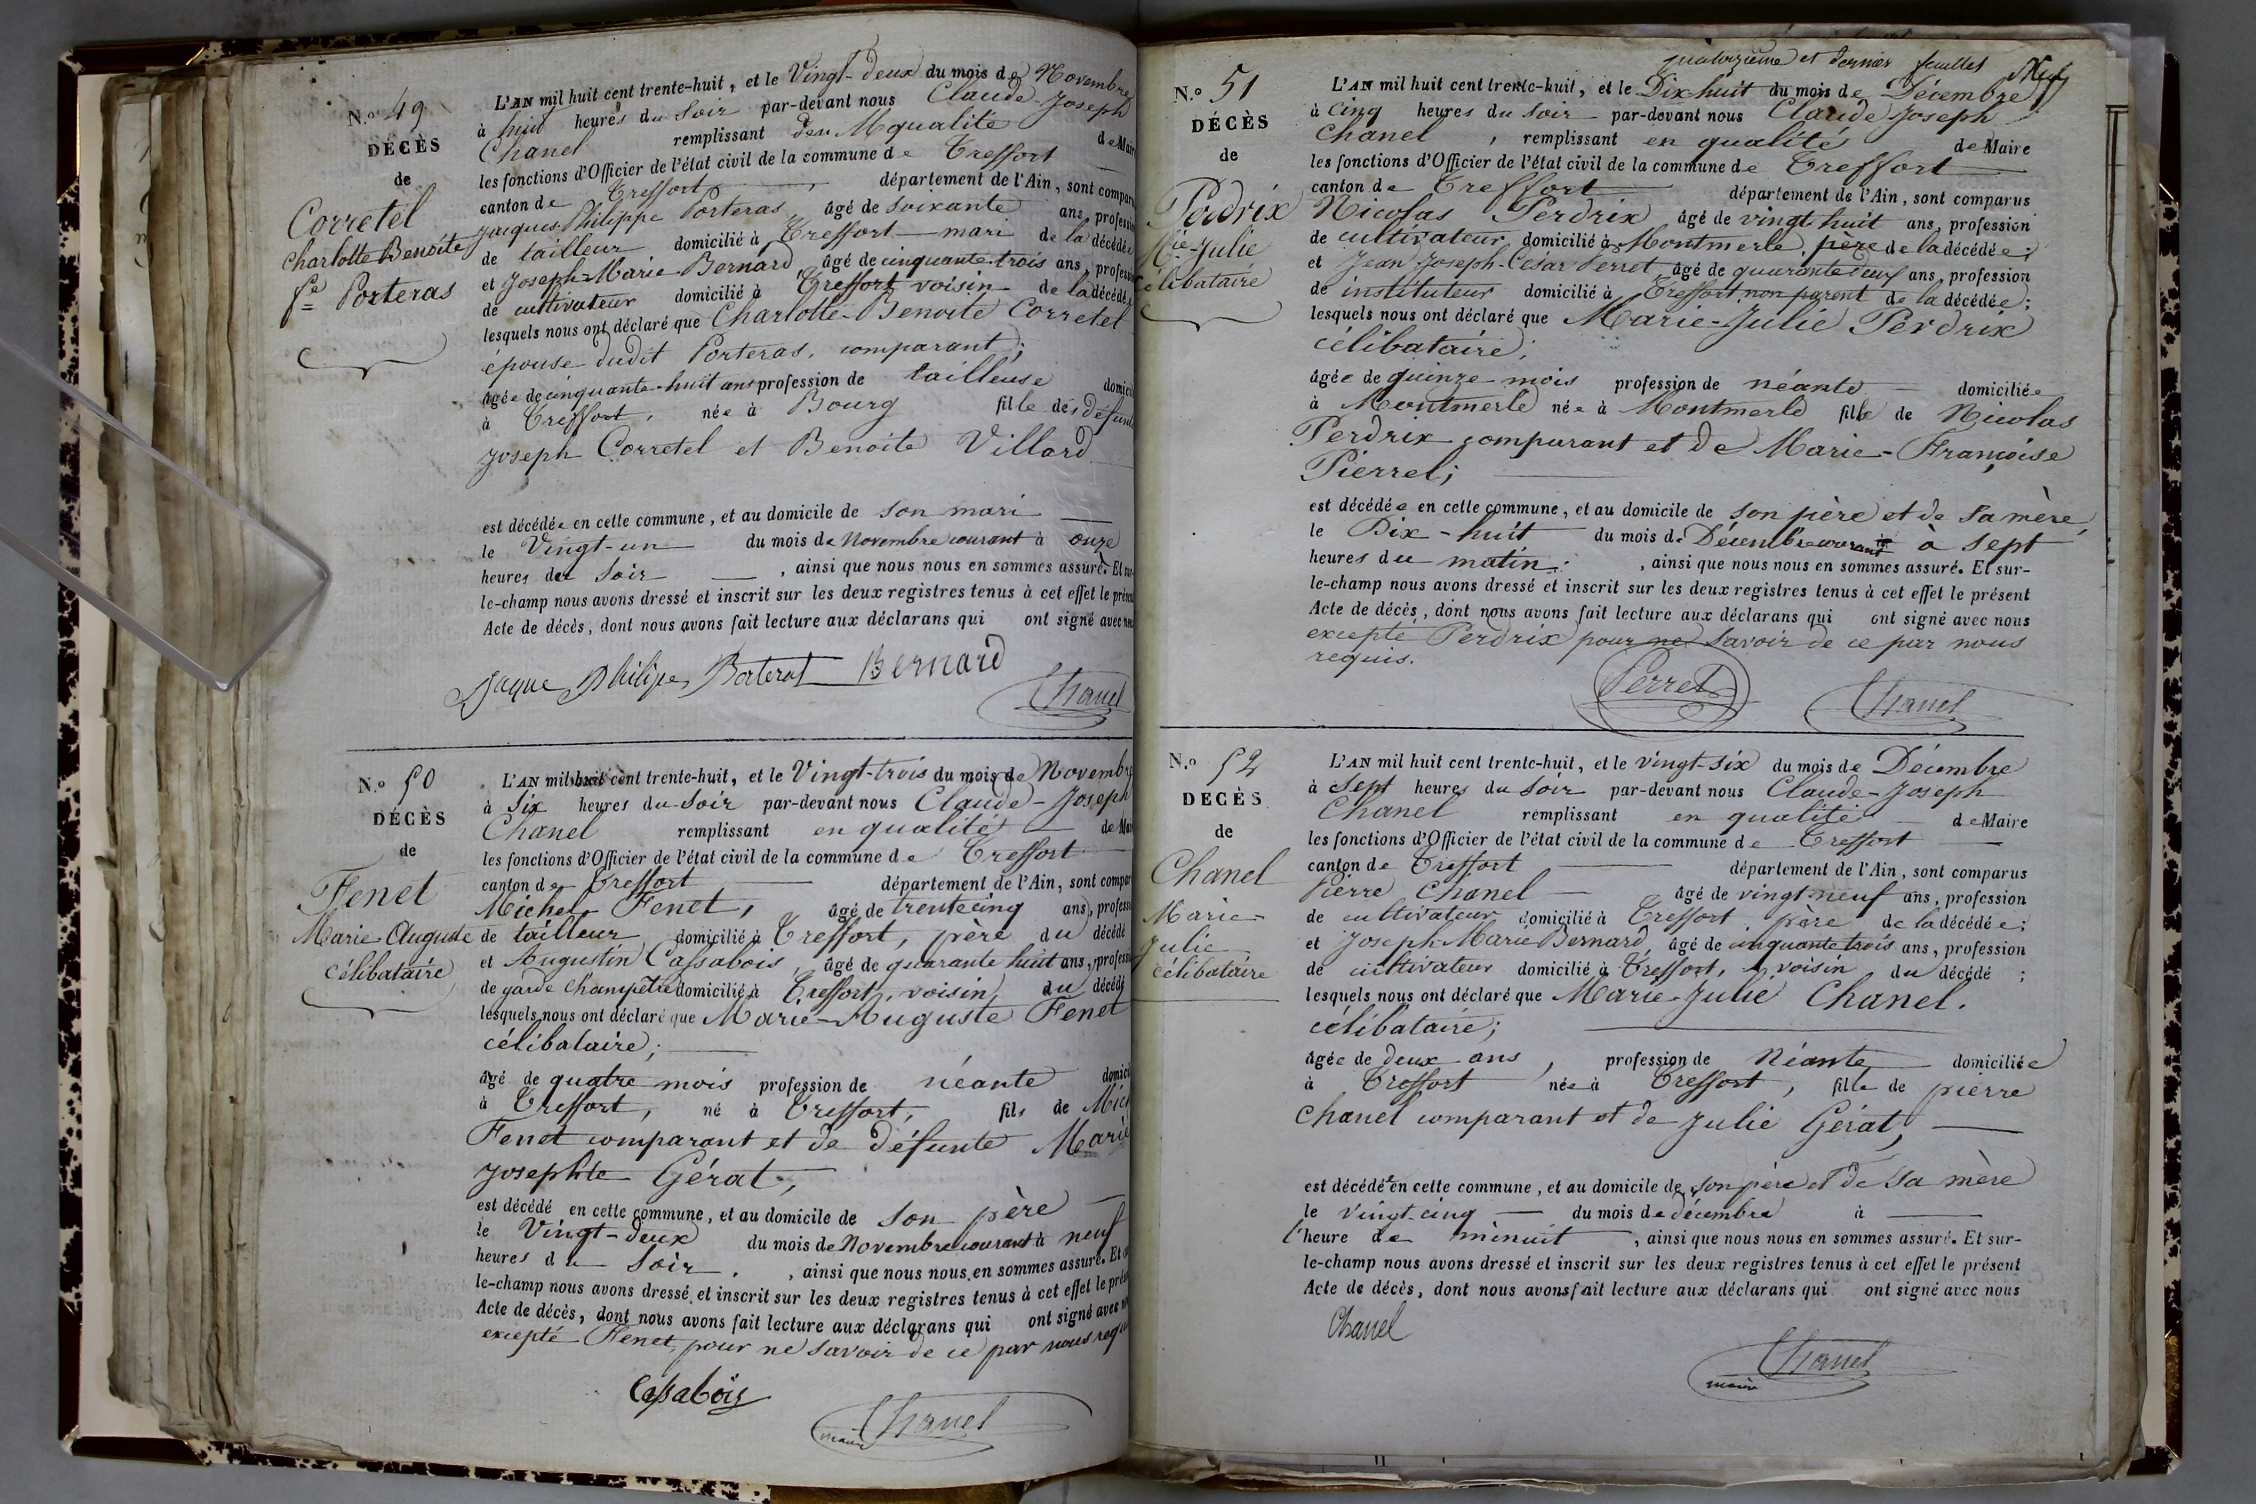 N.o 49
DÉCÈS
de
Corretel
Charlotte Benoite
fe Porteras
L'AN mil huit cent trente-huit, et le Vingt-deux du mois de Novembre
à huit heures du Soir par-devant nous Claude-Joseph
Chanel remplissant en qualité de Maire
les fonctions d'Officier de l'état civil de la commune de Treffort
canton de Treffort, département de l'Ain, sont compar
Jacques Philippe Porteras, âgé de soixante ans, profession
de tailleur domicilié à Treffort mari de la décédée
et Joseph-Marie Bernard âgé de cinquante-trois ans, profession
de cultivateur domicilié à Treffort voisin de la décédée
lesquels nous ont déclaré que Charlotte-Benoite Corretel
épouse dudit Porteras, comparant;
âgée de cinquante-huit ans profession de tailleuse domici
à Treffort, née à Bourg fille des défunts
Joseph Corretel et Benoite Villard
est décédée en cette commune, et au domicile de son mari
le Vingt-un du mois de Novembre courant à onze
heures du Soir, ainsi que nous nous en sommes assuré. Et sur-
le-champ nous avons dressé et inscrit sur les deux registres tenus à cet effet le présent
Acte de décès, dont nous avons fait lecture aux déclarans qui ont signé avec nous
Jaque Philipe Porterat Bernard
Chanel
N.o 50
DÉCÈS
de
Fenet
Marie Auguste
Célibataire
L'AN mil huit cent trente-huit, et le Vingt-trois du mois de Novembre
à Six heures du Soir par-devant nous Claude-Joseph
Chanel remplissant en qualité de Mai
les fonctions d'Officier de l'état civil de la commune de Treffort
canton de Treffort département de l'Ain, sont compar
Michel Fenet, âgé de trente cinq ans, profess
de tailleur domicilié à Treffort, père du décédé
et Augustin Cassabois, âgé de quarante huit ans, profess
de garde Champêtre domicilié à Treffort, voisin du décédé
lesquels nous ont déclaré que Marie-Auguste Fenet
célibataire;
âgé de quatre mois profession de néante domici
à Treffort, né à Treffort, fils de Mich
Fenet comparant et de défunte Marie
Josephte Gérat,
est décédé en cette commune, et au domicile de son père
le Vingt-deux du mois de Novembre courant à neuf
heures du Soir, ainsi que nous nous en sommes assuré. Et
le-champ nous avons dressé et inscrit sur les deux registres tenus à cet effet le prés
Acte de décès, dont nous avons fait lecture aux déclarans qui ont signé avec
excepté Fenet, pour ne savoir de ce par nous requ
Cassabois
Chanel
maire
quatorzième et dernier feuillet
N.o 51
DÉCÈS
de
Perdrix
Mie Julie
célibataire
L'AN mil huit cent trente-huit, et le Dix-huit du mois de Décembre
à Cinq heures du Soir par-devant nous Claude Joseph
Chanel, remplissant en qualité de Maire
les fonctions d'Officier de l'état civil de la commune de Treffort
canton de Treffort département de l'Ain, sont comparus
Nicolas Perdrix, âgé de vingt huit ans, profession
de cultivateur domicilié à Montmerle, père de la décédée;
et Jean Joseph-César Perret, âgé de quarante deux ans, profession
de instituteur domicilié à Treffort non parent de la décédée;
lesquels nous ont déclaré que Marie-Julie Perdrix
célibataire;
âgée de quinze mois profession de néante domiciliée
à Montmerle née à Montmerle fille de Nicolas
Perdrix comparant et de Marie-Françoise
Pierrel;
est décédée en cette commune, et au domicile de son père et de sa mère,
le Dix-huit du mois de Décembre courant à sept
heures du matin, ainsi que nous nous en sommes assuré. Et sur-
le-champ nous avons dressé et inscrit sur les deux registres tenus à cet effet le présent
Acte de décès, dont nous avons fait lecture aux déclarans qui ont signé avec nous
excepté Perdrix pour ne savoir de ce par nous
requis.
Perret
Chanel
N.o 52
DECÈS
de
Chanel
Marie-
Julie
célibataire
L'AN mil huit cent trente-huit, et le vingt-six du mois de Décembre
à Sept heures du Soir par-devant nous Claude-Joseph
Chanel remplissant en qualité de Maire
les fonctions d'Officier de l'état civil de la commune de Treffort
canton de Treffort département de l'Ain, sont comparus
Pierre Chanel âgé de vingt neuf ans, profession
de cultivateur domicilié à Treffort, père de la décédée;
et Joseph Marie Bernard, âgé de cinquante trois ans, profession
de cultivateur domicilié à Treffort, voisin du décédé;
lesquels nous ont déclaré que Marie-Julie Chanel.
célibataire;
âgée de deux ans, profession de Néante domiciliée
à Treffort née à Treffort, fille de pierre
chanel comparant et de Julie Gérat,
est décédée en cette commune, et au domicile de son père et de sa mère
le vingt-cinq du mois de décembre à
l'heure de minuit, ainsi que nous nous en sommes assuré. Et sur-
le-champ nous avons dressé et inscrit sur les deux registres tenus à cet effet le présent
Acte de décès, dont nous avons fait lecture aux déclarans qui ont signé avec nous
Chanel
Chanel
maire